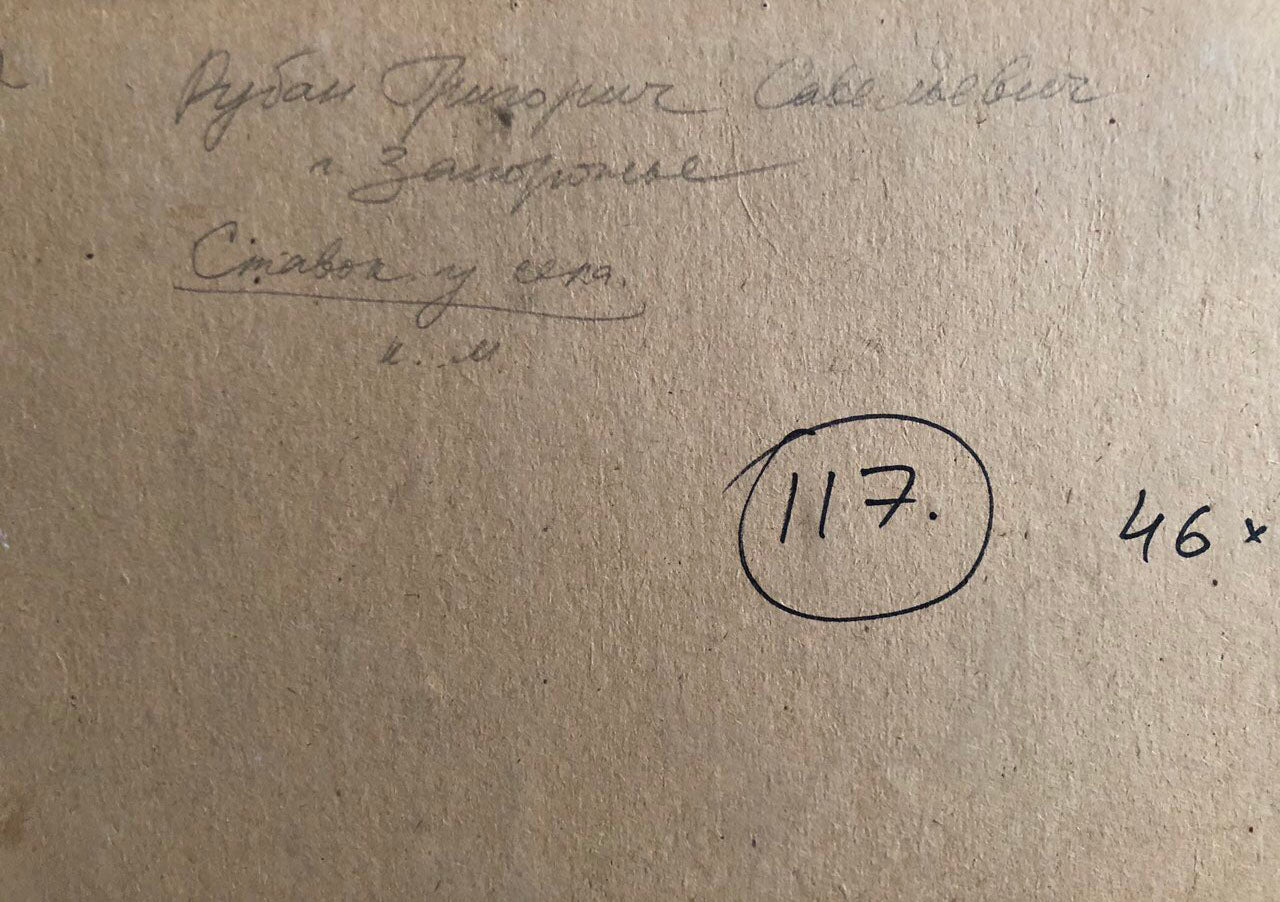 Рубан Григорич Савельевич
г. Запорожье
Ставок у села.
к. м
117.
46 ×